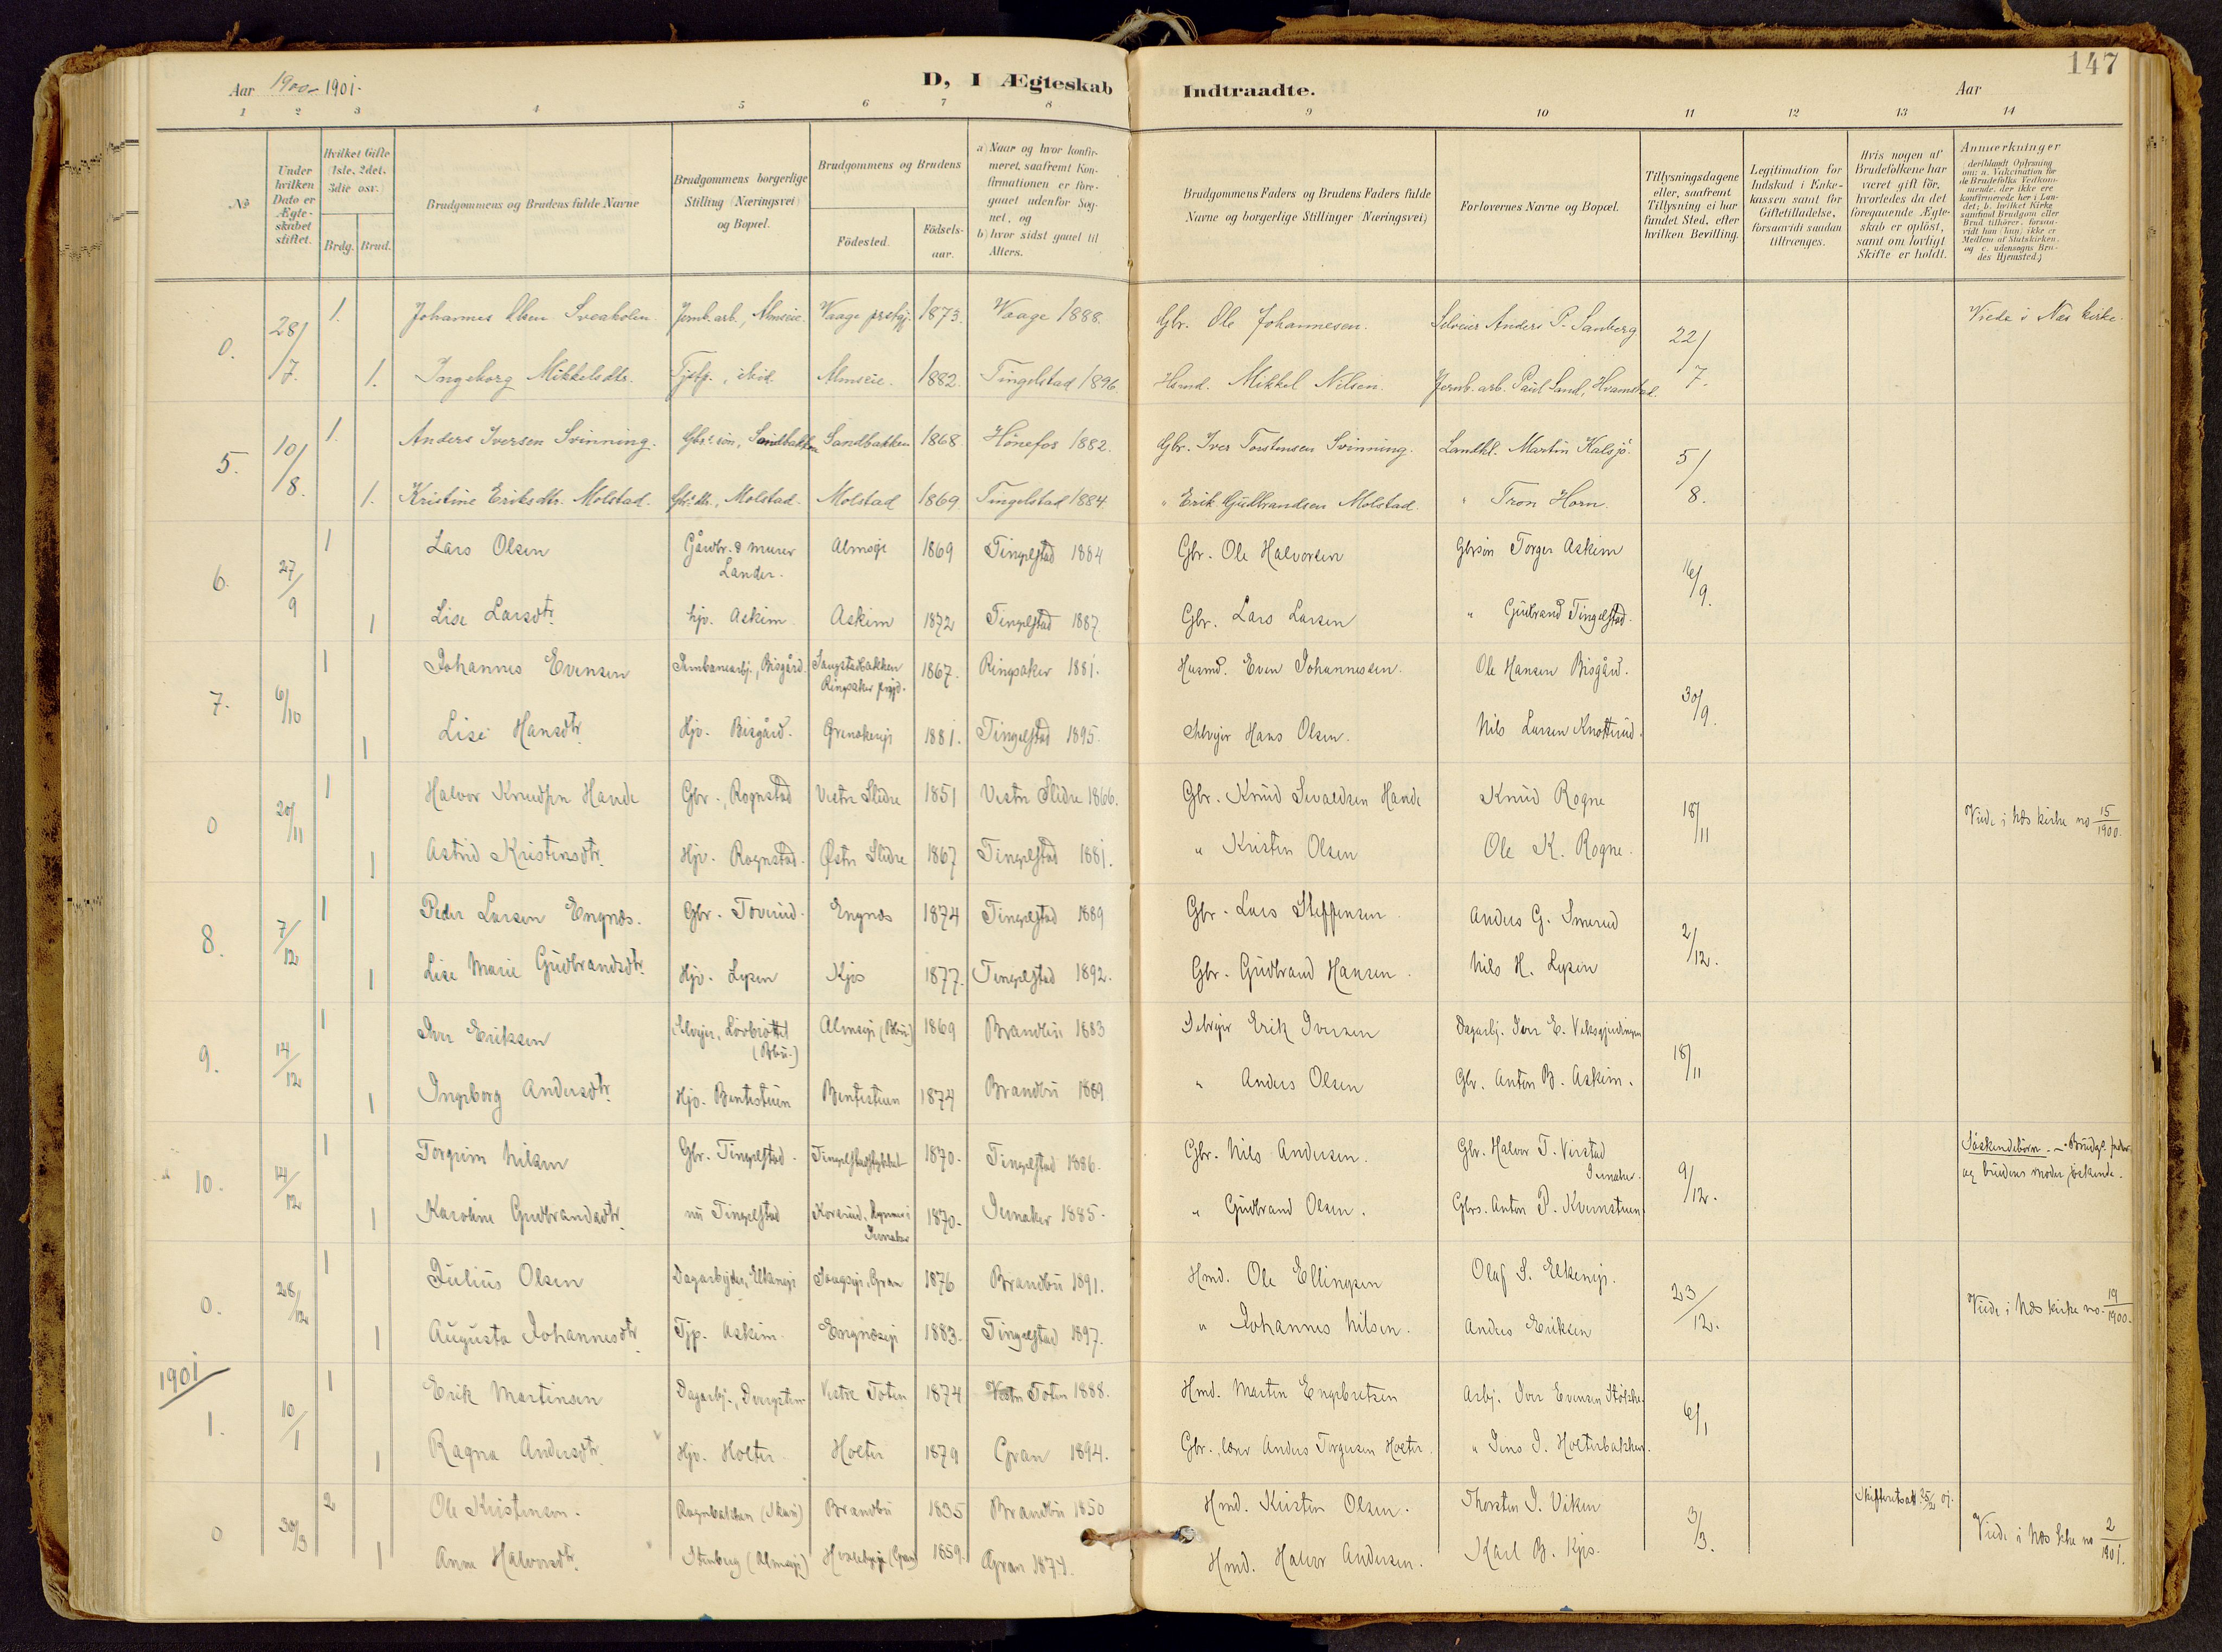 147
Aar 1900-1901.
D, I Ægteskab Indtraadte.
Aar
1 2 3 4 5 6 7 8 9 10 11 12 13 14
№
Under hvilken Dato er Ægteskabet stiftet.
Hvilket Gifte (1ste, 2det, 3die osv.)
Brdg. Brud.
Brudgommens og Brudens fulde Navne
Brudgommens borgerlige Stilling (Næringsvei) og Bopæl.
Brudgommens og Brudens
Födested.
Födsels-aar.
a) Naar og hvor konfirmeret, saafremt Konfirmationen er foregaaet udenfor Sognet, og
b) hvor sidst gaaet til Alters.
Brudgommens Faders og Brudens Faders fulde Navne og borgerlige Stillinger (Næringsvei)
Forlovernes Navne og Bopæl.
Tillysningsdagene eller, saafremt Tillysning ei har fundet Sted, efter hvilken Bevilling.
Legitimation for Indskud i Enkekassen samt for Giftetilladelse, forsaavidt saadan tiltrænges.
Hvis nogen af Brudefolkene har været gift för, hvorledes da det foregaaende Ægteskab er oplöst, samt om lovligt Skifte er holdt.
Anmerkninger (deriblandt Oplysning om: a. Vaccination for de Brudefolks Vedkommende, der ikke ere konfirmerede her i Landet; b. hvilket Kirkesamfund Brudgom eller Brud tilhörer, forsaavidt han (hun) ikke er Medlem af Statskirken, og c. udensogns Brudes Hjemsted.)
0. 28/7. 1. Johannes Olsen Sveabolen. Jernb.arb., Almseie. Vaage prstgj. 1873. Vaage 1888. Gbr. Ole Johannesen. Selveier Anders P. Sanberg 22/7. Viede i Næs kirke.
1. Ingeborg Mikkelsdtr. Tjstp., ibid. Almseie. 1882. Tingelstad 1896. Hsmd. Mikkel Nilsen. Jernb.arb. Paul Sand, Hvamstad.
5. 10/8. 1. Anders Iversen Svinning. Gbr.søn, Sandbakken Sandbakken 1868. Hönefos 1882. Gbr. Iver Torstensen Svinning. Landhl. Martin Kalsjö. 5/8.
1. Kristine Eriksdtr. Molstad. Gbr.dtr., Molstad. Molstad 1869. Tingelstad 1884. " Erik Gudbrandsen Molstad. " Tron Horn.
6. 27/9 1 Lars Olsen Gårdbr. & murer Lander. Almseje 1869 Tingelstad 1884 Gbr. Ole Halvorsen Gbrsön Torger Askim 16/9.
1 Lise Larsdtr. hjv. Askim Askim 1872 Tingelstad 1887. Gbr. Lars Larsen " Gudbrand Tingelstad.
7. 6/10 1 Johannes Evensen Jernbanearbj., Bisgård. Saugstadbakken Ringsaker prgjd. 1867. Ringsaker 1881. Husmd. Even Johannessen. Ole Hansen Bisgård. 30/9.
1 Lise Hansdtr. Hjv. Bisgård. Grinakereje 1881. Tingelstad 1895. Selvejer Hans Olsen. Nils Larsen Knotterud.
0 20/11 1 Halvor Knudsen Hande Gbr., Rognstad Vestre Slidre 1851 Vestre Slidre 1866. Gbr. Knud Sevaldsen Hande Knud Rogne 18/11 Viede i Næs kirke no 15/1900.
1 Astrid Kristensdtr. Hjv. Rognstad. Østre Slidre 1867 Tingelstad 1881. " Kristen Olsen Ole K. Rogne.
8. 7/12 1 Peder Larsen Engnæs. Gbr. Toverud. Engnæs 1874 Tingelstad 1889 Gbr. Lars Steffensen Anders G. Smerud 2/12.
1 Lise Marie Gudbrandsdtr. Hjv. Lysen Kjos 1877. Tingelstad 1892. Gbr. Gudbrand Hansen. Nils H. Lysen
9. 14/12 1 Iver Eriksen Selvejer, (Bbu.) Almseje (Bbu) 1869 Brandbu 1883 Selvejer Erik Iversen Dagarbj. Iver E. 18/11
1 Ingeborg Andersdtr. Hjv. Bentestuen Bentestuen 1874 Brandbu 1889 " Anders Olsen Gbr. Anton B. Askim.
10. 14/12 1 Torgrim Nilsen Gbr. Tingelstad. Tingelstadstykket 1870. Tingelstad 1886. Gbr. Nils Andersen. Gbr. Halvor T. Verstad Jevnaker. 9/12. Söskendebörn. - Brudgs. fader og brudens moder söskende.
1 Karoline Gudbrandsdtr. nu Tingelstad Korsrud, Jevnaker 1870. Jevnaker 1885. " Gudbrand Olsen. Gbrs. Anton P. Kvernstuen
0. 28/12 1 Julius Olsen Dagarbejder, Elkeneje Saugeje, Gran 1876 Brandbu 1891. Hmd. Ole Ellingsen Olaf S. Elkeneje. 23/12. Viede i Næs kirke no. 19/1900.
1 Augusta Johannesdtr. Tjp. Askim Engnæseje 1883. Tingelstad 1897. " Johannes Nilsen. Anders Eriksen
1901
1. 10/1 1 Erik Martinsen Dagarbj., Dvergsten Vestre Toten 1874 Vestre Toten 1888. Hmd. Martin Engebretsen Arbj. Iver Evensen 6/1
1 Ragna Andersdtr. Hjv. Holter Holter 1879 Gran 1894. Gbr., lærer Anders Torgersen Holter. " Jens J. Holterbakken.
0 30/3 2 Ole Kristensen. Brandbu 1835 Brandbu 1850 Hmd. Kristen Olsen. Thorsten J. Viken 3/3. Skifteretsatt. 25/2 01. Viede i Næs kke no 2/1901.
1 Anne Halvorsdtr. Stenberg (Almseje) (Gran) 1859. Gran 1874. Hmd. Halvor Andersen. Karl B. Kjos.